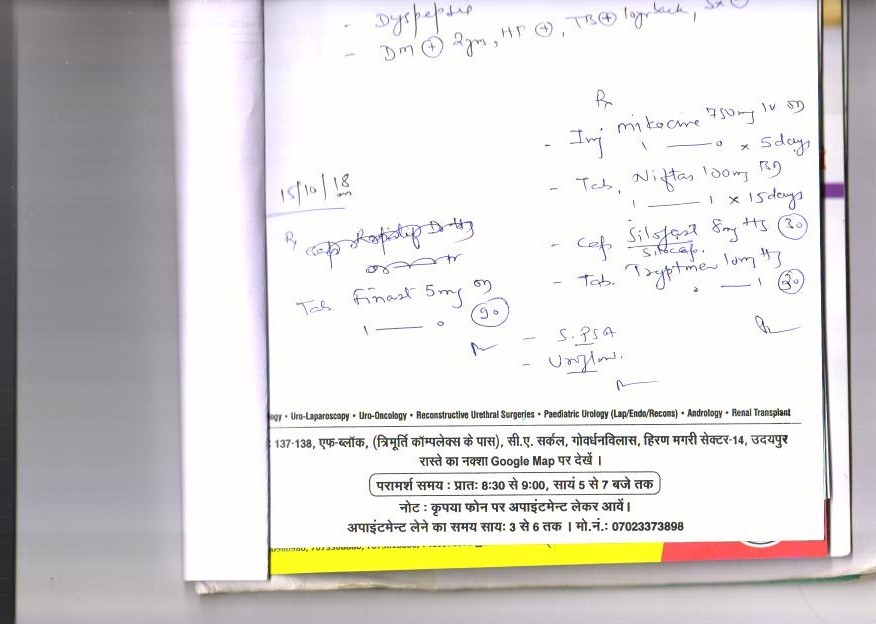 - Dyspepsia
- DM + 2yrs, HT +, TB + long back, Sx
Rx
- Inj mikacine 750mg IV OD
1 — 0 x 5days
- Tab. Niftas 100mg BD
1 — 1 x 15days
- Cap Silofast 8mg HS 30
Silocap.
- Tab. Tryptmer 10mg HS
0 — 1 30
- S. PSA
- Uroflow.
15/10/18
Rx
Tab Finast 5mg OD
1 — 0 90
ogy • Uro-Laparoscopy • Uro-Oncology • Reconstructive Urethral Surgeries • Paediatric Urology (Lap/Endo/Recons) • Andrology • Renal Transplant
137-138, एफ-ब्लॉक, (त्रिमूर्ति कॉम्पलेक्स के पास), सी.ए. सर्कल, गोवर्धनविलास, हिरण मगरी सेक्टर-14, उदयपुर
रास्ते का नक्शा Google Map पर देखें ।
परामर्श समय : प्रातः 8:30 से 9:00, सायं 5 से 7 बजे तक
नोट : कृपया फोन पर अपाइंटमेन्ट लेकर आवें।
अपाइंटमेन्ट लेने का समय सायः 3 से 6 तक । मो.नं.: 07023373898